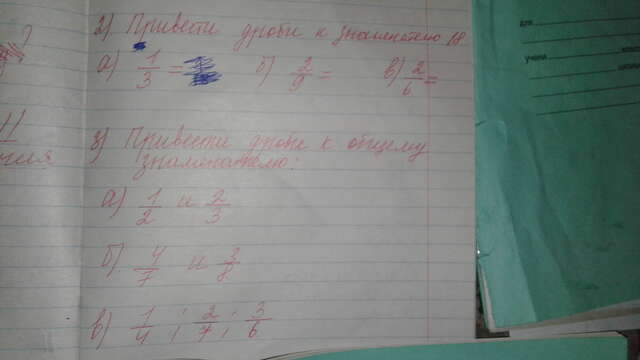 ?
2) Привести дроби к знаменателю 18
а) 1/3 = б) 2/9 = в) 2/6 =
3) Привести дроби к общему
знаменателю:
а) 1/2 и 2/3
б) 4/7 и 3/8
в) 1/4 ; 2/7 ; 3/6
для
учени